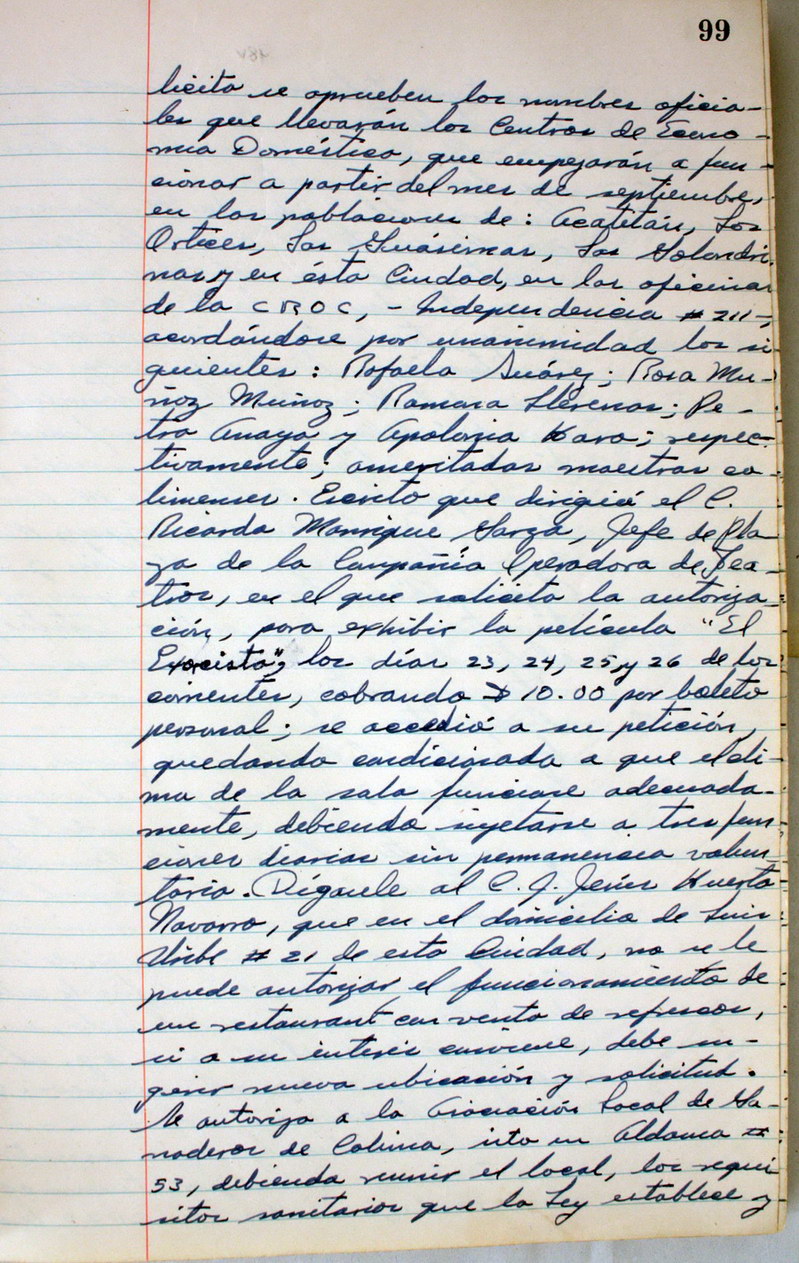 99
licita se aprueben los nombres oficia-
les que llevarán los Centros de Econo-
mia Doméstica, que empezarán a fun-
cionar a partir del mes de septiembre,
en las poblaciones de: Acatitán, Los
Ortices, Las Guásimas, Las Golondri-
nas y en ésta Ciudad, en las oficinas
de la CROC, - Independencia # 211-,
acordándose por unanimidad los si-
guientes: Rafaela Suárez; Rosa Mu-
ñoz Muñoz; Ramara Llerenas; Pe-
tra Anaya y Apolonia Kara; respec-
tivamente; ameritadas maestras co-
limenses. Escrito que dirigió el C.
Ricardo Manrique Garza, Jefe de Pla-
za de la Compañía Operadora de Tea-
tros, en el que solicita la autoriza-
ción, para exhibir la película "El
Exorcista", los días 23, 24, 25, y 26 de los
corrientes, cobrando $ 10.00 por boleto
personal; se accedió a su petición,
quedando condicionada a que el cli-
ma de la sala funcione adecuada-
mente, debiendo sujetarse a tres fun-
ciones diarias sin permanencia volun-
taria. Dígasele al C. J. Jesús Huerta
Navarro, que en el domicilio de Luis
Uribe # 21 de esta Ciudad, no se le
puede autorizar el funcionamiento de
un restaurant con venta de refrescos,
si a su interés conviene, debe su-
gerir nueva ubicación y solicitud.
Se autoriza a la Asociación Local de Ga-
naderos de Colima, sito en Aldama #
53, debiendo reunir el local, los requi-
sitos sanitarios que la Ley establece y